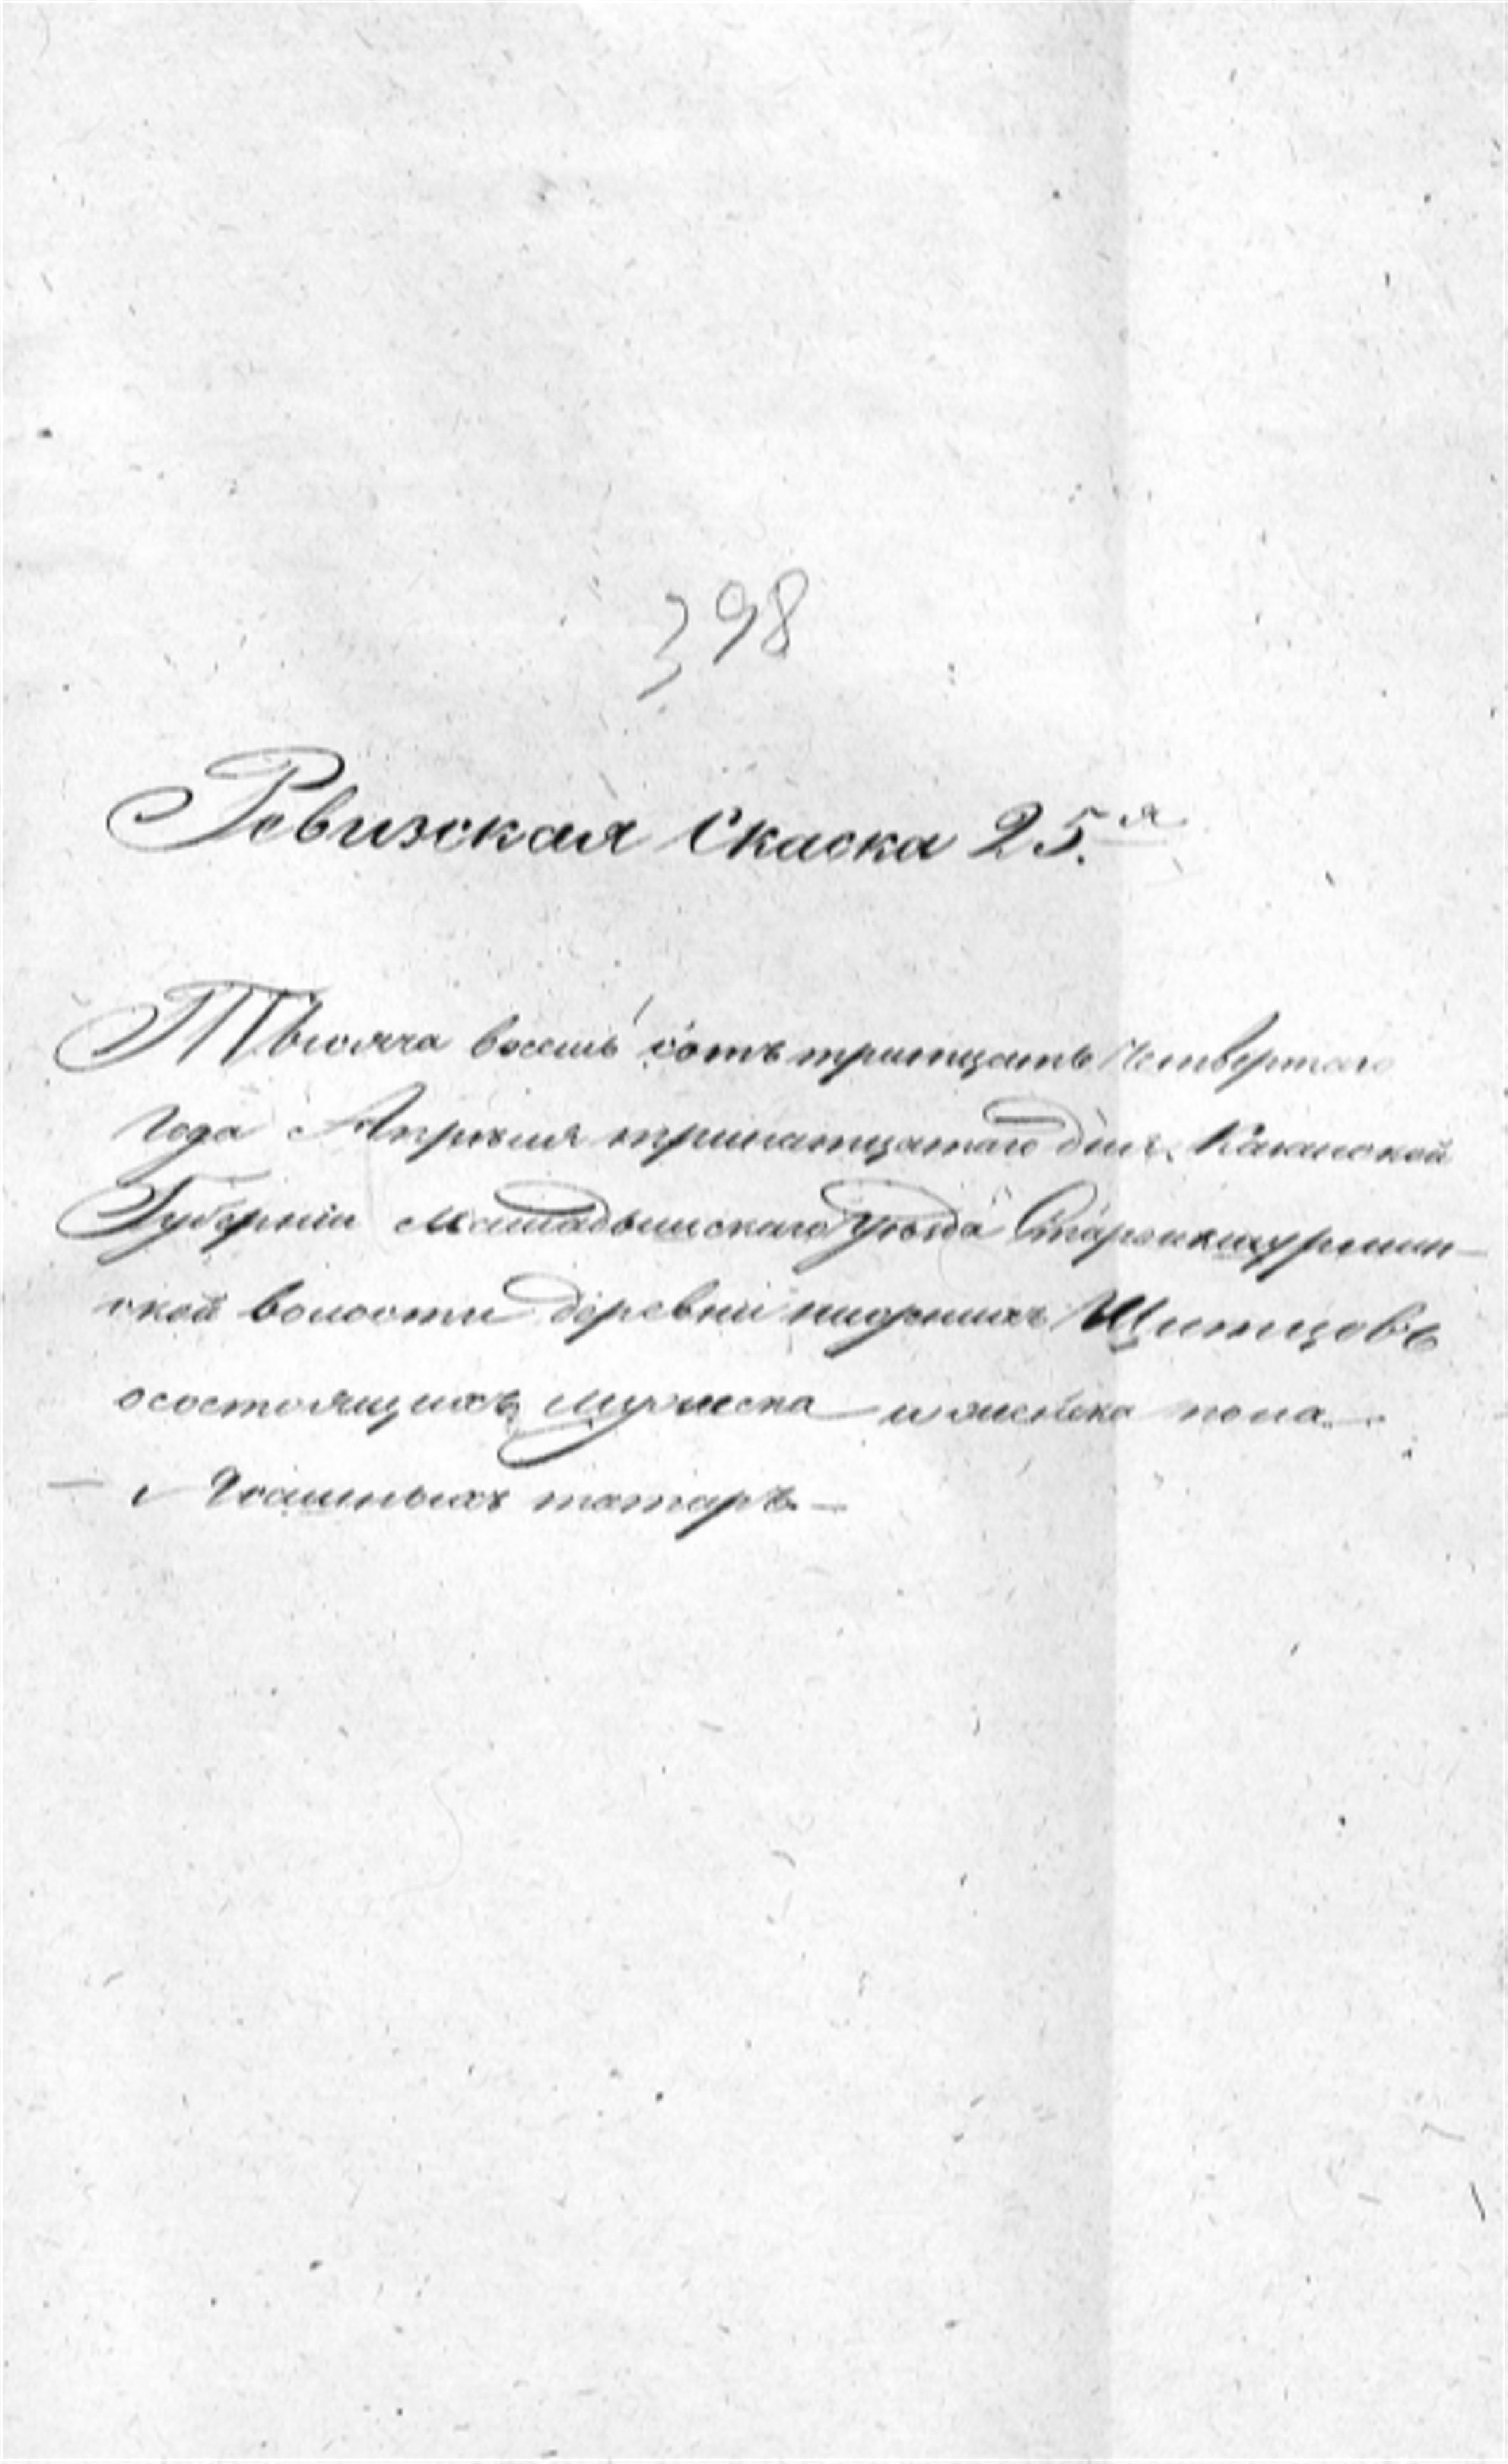 398
Ревизская Скаска 25.я
Тысяча восемь сотъ тритцать Четвертаго
года Апреля тринатцатаго дня. Казанской
Губерніи Мамадышскаго Уѣзда Старо
ской волости деревни нижнихъ Шитцовъ
осостоящихъ мужеска и женска пола
татаръ